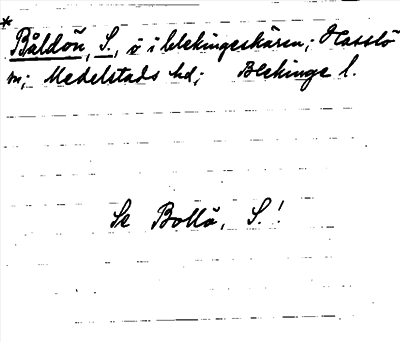 * Båldön, S., ö i blekingeskären; Hasslö
sn; Medelstads hd; Blekinge l.
Se Bollö, S.!